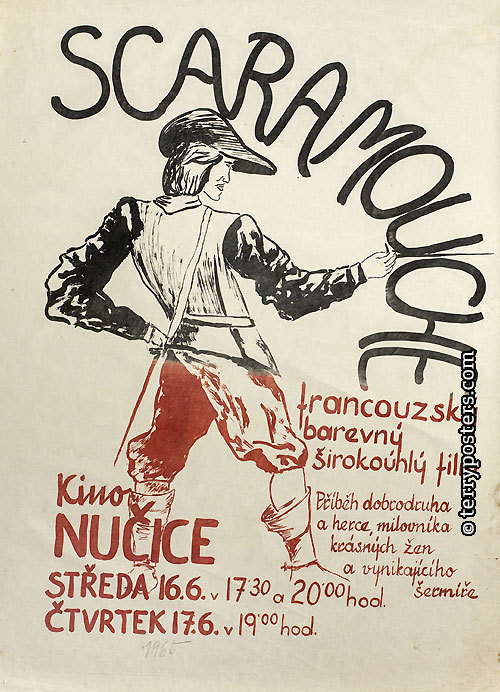 SCARAMOUCHE
francouzský
barevný
širokoúhlý film
Příběh dobrodruha
a herce, milovníka
krásných žen
a vynikajícího
šermíře
Kino
NUČICE
STŘEDA 16.6. v 17·30 a 20·00 hod.
ČTVRTEK 17.6. v 19·00 hod.
1965
© terryposters.com